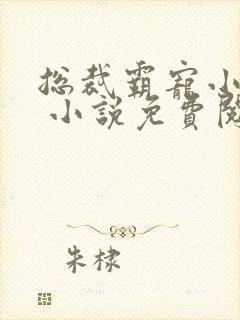 總裁霸寵小
小說免費閱
朱棣